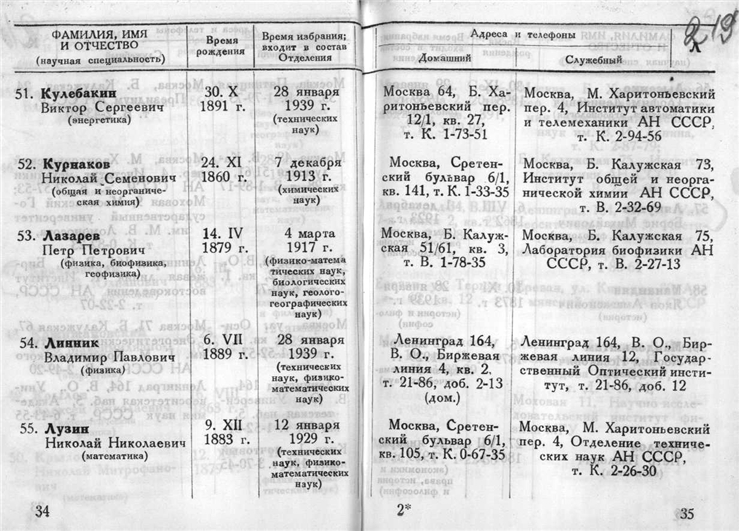 ФАМИЛИЯ, ИМЯ
И ОТЧЕСТВО
(научная специальность)
Время
рождения
Время избрания;
входит в состав
Отделения
51. Кулебакин
Виктор Сергеевич
(энергетика)
30. X
1891 г.
28 января
1939 г.
(технических
наук)
52. Курнаков
Николай Семенович
(общая и неорганиче-
ская химия)
24. XI
1860 г.
7 декабря
1913 г.
(химических
наук)
53. Лазарев
Петр Петрович
(физика, биофизика,
геофизика)
14. IV
1879 г.
4 марта
1917 г.
(физико-матема
тических наук,
биологических
наук, геолого-
географических
наук)
54. Линник
Владимир Павлович
(физика)
6. VII
1889 г.
28 января
1939 г.
(технических
наук, физико-
математических
наук)
55. Лузин
Николай Николаевич
(математика)
9. XII
1883 г.
12 января
1929 г.
(технических
наук, физико-
математических
наук)
34
Адреса и телефоны
Домашний
Служебный
219
Москва 64, Б. Ха-
ритоньевский пер.
12/1, кв. 27,
т. К. 1-73-51
Москва, М. Харитоньевский
пер. 4, Институт автоматики
и телемеханики АН СССР,
т. К. 2-94-56
Москва, Сретен-
ский бульвар 6/1,
кв. 141, т. К. 1-33-35
Москва, Б. Калужская 73,
Институт общей и неорга-
нической химии АН СССР,
т. В. 2-32-69
Москва, Б. Калуж-
ская 51/61, кв. 3,
т. В. 1-78-35
Москва, Б. Калужская 75,
Лаборатория биофизики АН
СССР, т. В. 2-27-13
Ленинград 164,
В. О., Биржевая
линия 4, кв. 2.
т. 21-86, доб. 2-13
(дом.)
Ленинград 164, В. О., Бир-
жевая линия 12, Государ-
ственный Оптический инсти-
тут, т. 21-86, доб. 12
Москва, Сретен-
ский бульвар 6/1,
кв. 105, т. К. 0-67-35
Москва, М. Харитоньевский
пер. 4, Отделение техниче-
ских наук АН СССР,
т. К. 2-26-30
2*
35